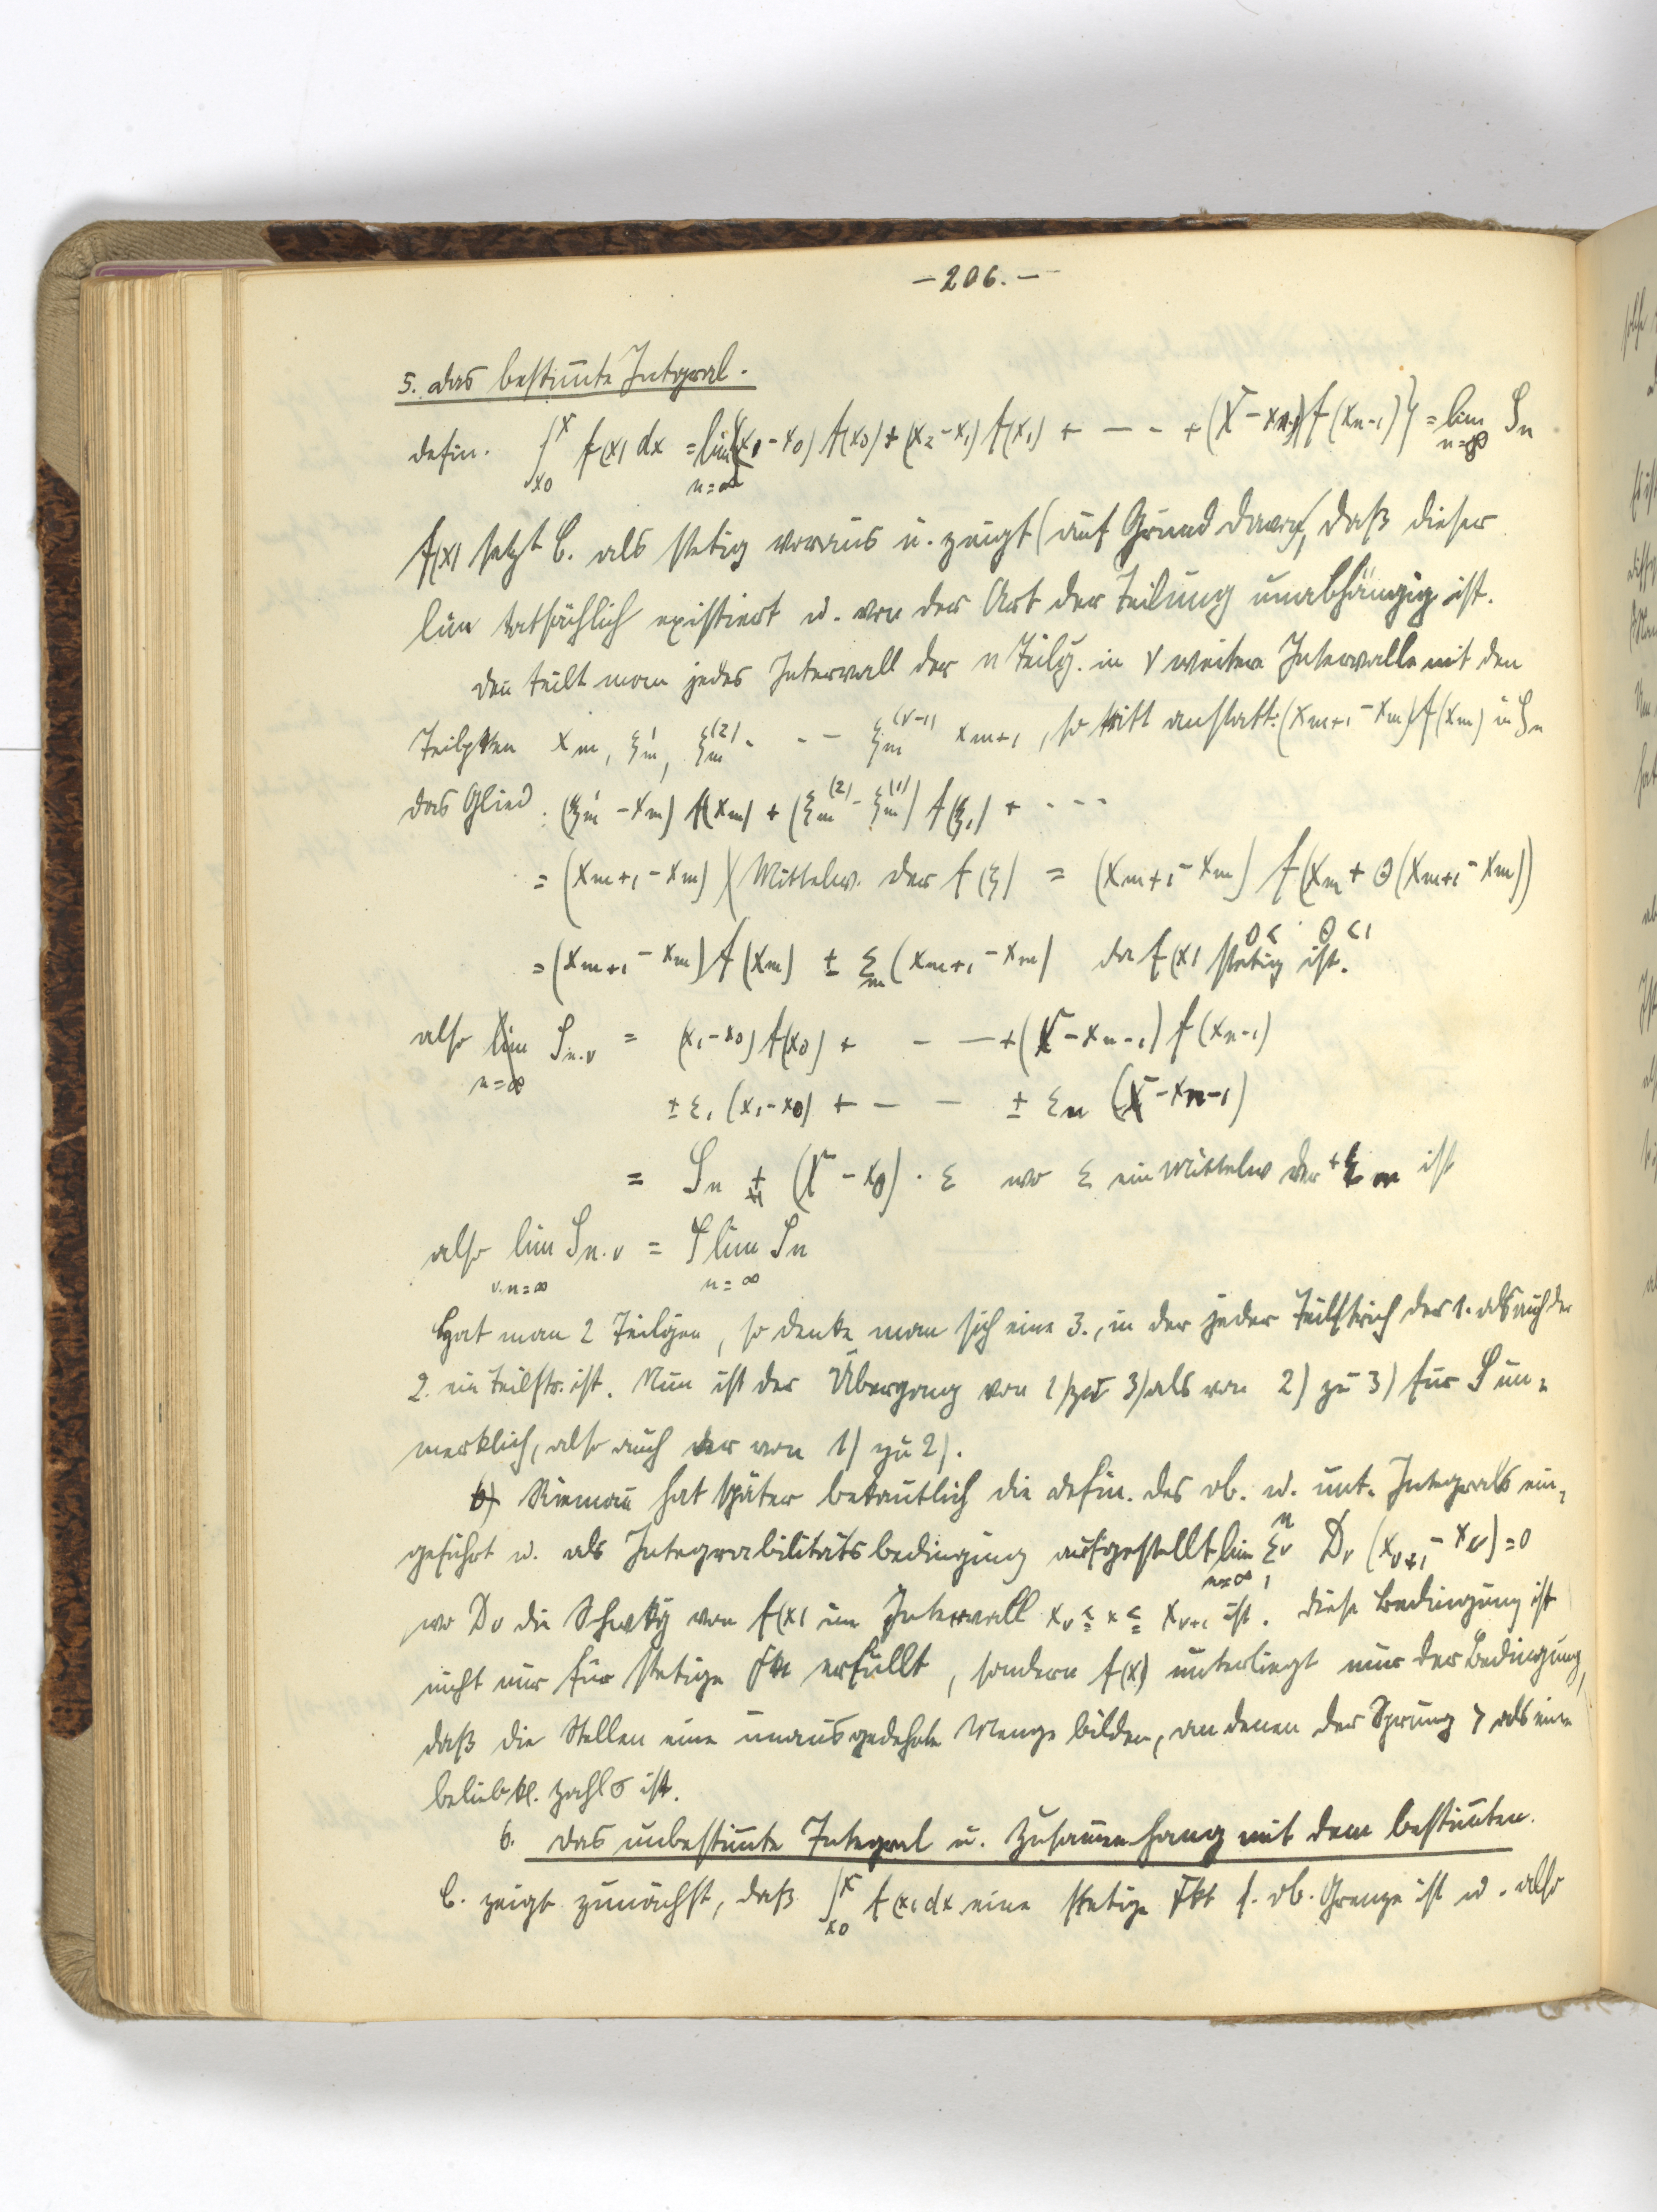 – 206. –
5. das bestim̄te Integral.
defin. ∫_{x0}^{X} f(x) dx = lim_{n=∞} {(x1 - x0) f(x0) + (x2 - x1) f(x1) + – – + (X - xn-1) f(xn-1)} = lim_{n=∞} Sn
f(x) setzt C. als stetig voraus u. zeigt (auf Grund davon), daß dieser
lim tatsächlich existiert u. von der Art der Teilung unabhängig ist.
Den̄ teilt man jedes Intervall der n Teilg. in ν weitere Intervalle mit den
Teilpkten xm, ξ'm, ξm^(2) . - – ξm^(ν-1) xm+1, so tritt anstatt: (xm+1 - xm) f(xm) in Sn
das Glied: (ξ'm - xm) f(xm) + (ξm^(2) - ξm^(1)) f(ξ1) + . - -
= (xm+1 - xm) (Mittelw. der f(ξ) = (xm+1 - xm) f(xm + Θ(xm+1 - xm))
0 < Θ < 1
= (xm+1 - xm) f(xm) ± εm (xm+1 - xm) da f(x) stetig ist.
also lim_{n=∞} Sn.ν = (x1 - x0) f(x0) + – – + (X - xn-1) f(xn-1)
± ε1 (x1 - x0) + – – ± εn (X - xn-1)
= Sn ± (X - x0) · ε wo ε ein Mittelw der ± εm ist
also lim_{ν.n=∞} Sn.ν = lim_{n=∞} Sn
Hat man 2 Teilgen, so denke man sich eine 3., in der jeder Teilstrich der 1. als auch der
2. ein Teilstr. ist. Nun ist der Übergang von 1) zu 3) als von 2) zu 3) für S un=
merklich, also auch der von 1) zu 2).
Rieman̄ hat später bekan̄tlich die defin. des ob. u. unt. Integrals ein=
geführt u. als Integrabilitätsbedingung aufgestellt lim_{n=∞} Σν_1^n Dν (xν+1 - xν) = 0
wo Dν die Schwkg von f(x) im Intervall xν ≦ x ≦ xν+1 ist. Diese Bedingung ist
nicht nur für stetige Fkt erfüllt, sondern f(x) unterliegt nur der Bedingung,
daß die Stellen eine unausgedehnte Menge bilden, an denen der Sprung > als eine
belieb kl. Zahl σ ist.
6. das unbestim̄te Integral u. Zusam̄enhang mit dem bestim̄ten.
C. zeigt zunächst, daß ∫_{x0}^{X} f(x) dx eine stetige Fkt s. ob. Grenze ist u. also